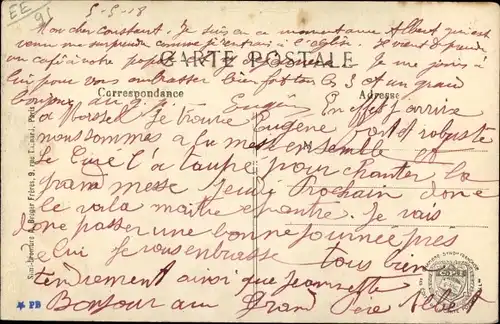 EE
91
5-5-18
Mon cher Constant. Je suis en ce moment avec Albert qui est
venu me surprendre comme j'entrais à l'église. Je viens de prendre
un café à votre
CARTE POSTALE
Je me joins à
lui pour vous embrasser bien fort tous les 3 et un grand
bonjour au g. p. Eugène
Correspondance
Adresse
En effet j'arrive
Je trouve Eugène fort robuste
nous sommes a la messe ensemble et
le Curé l'a taupé pour chanter la
grand messe jeudi prochain donc
le voila maître chantre. Je vais
donc passer une bonne journée près
de lui je vous embrasse tous bien
tendrement ainsi que Jeannette
Bonjour au Grand Père Albert
Berger Frères, 9, rue Thénard, Paris
★ PD